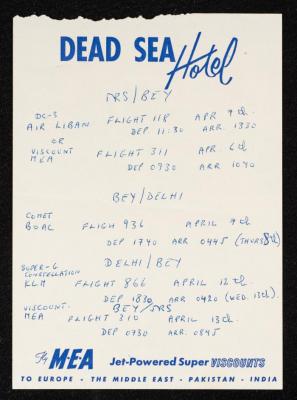 DEAD SEA
Hotel
JRS/BEY
DC-3
AIR LIBAN FLIGHT 118 APR 9th
DEP 11:30 ARR. 1330
OR
VISCOUNT FLIGHT 311 APR 6th
MEA DEP 0730 ARR 1040
BEY/DELHI
COMET
BOAC FLIGH 936 APRIL 9th
DEP 1740 ARR 0445 (THURS 8th)
SUPER-G DELHI/BEY
CONSTELLATION
KLM FLIGHT 866 APRIL 12th
DEP 1830 ARR 0420 (WED. 13th.)
VISCOUNT. BEY/JRS
MEA FLIGHT 310 APRIL 13th.
DEP 0730 ARR. 0845
Fly MEA Jet-Powered Super VISCOUNTS
TO EUROPE - THE MIDDLE EAST - PAKISTAN - INDIA